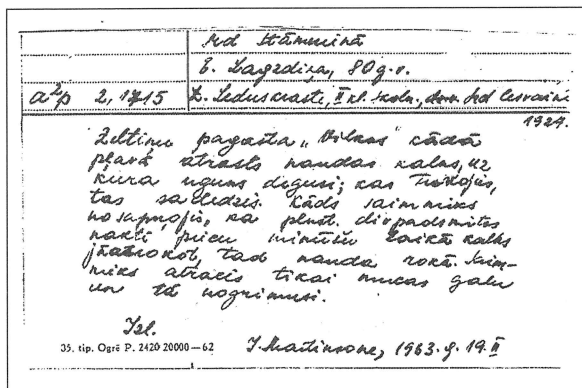 E. Lagzdiņa, 80 g.v.
a²p 2,
II kl. skoln., Md Cesvainē
1927.
Zeltiņu pagasta „ kādā
pļavā atrasts naudas kalns, uz
kura uguns degusi; kas
tas sadedzis. Kāds saimnieks
nosapņojis, ka plkst. divpadsmitos
naktī piecu minūšu laikā kalns
jāatrokot, tad nauda rokā. Saim-
nieks atracis tikai mucas galu
un tā nogrimusi.
Izl.
35. tip. Ogrē P. 2420 20000—62 J. Martinsone, 1963. g. 19.II